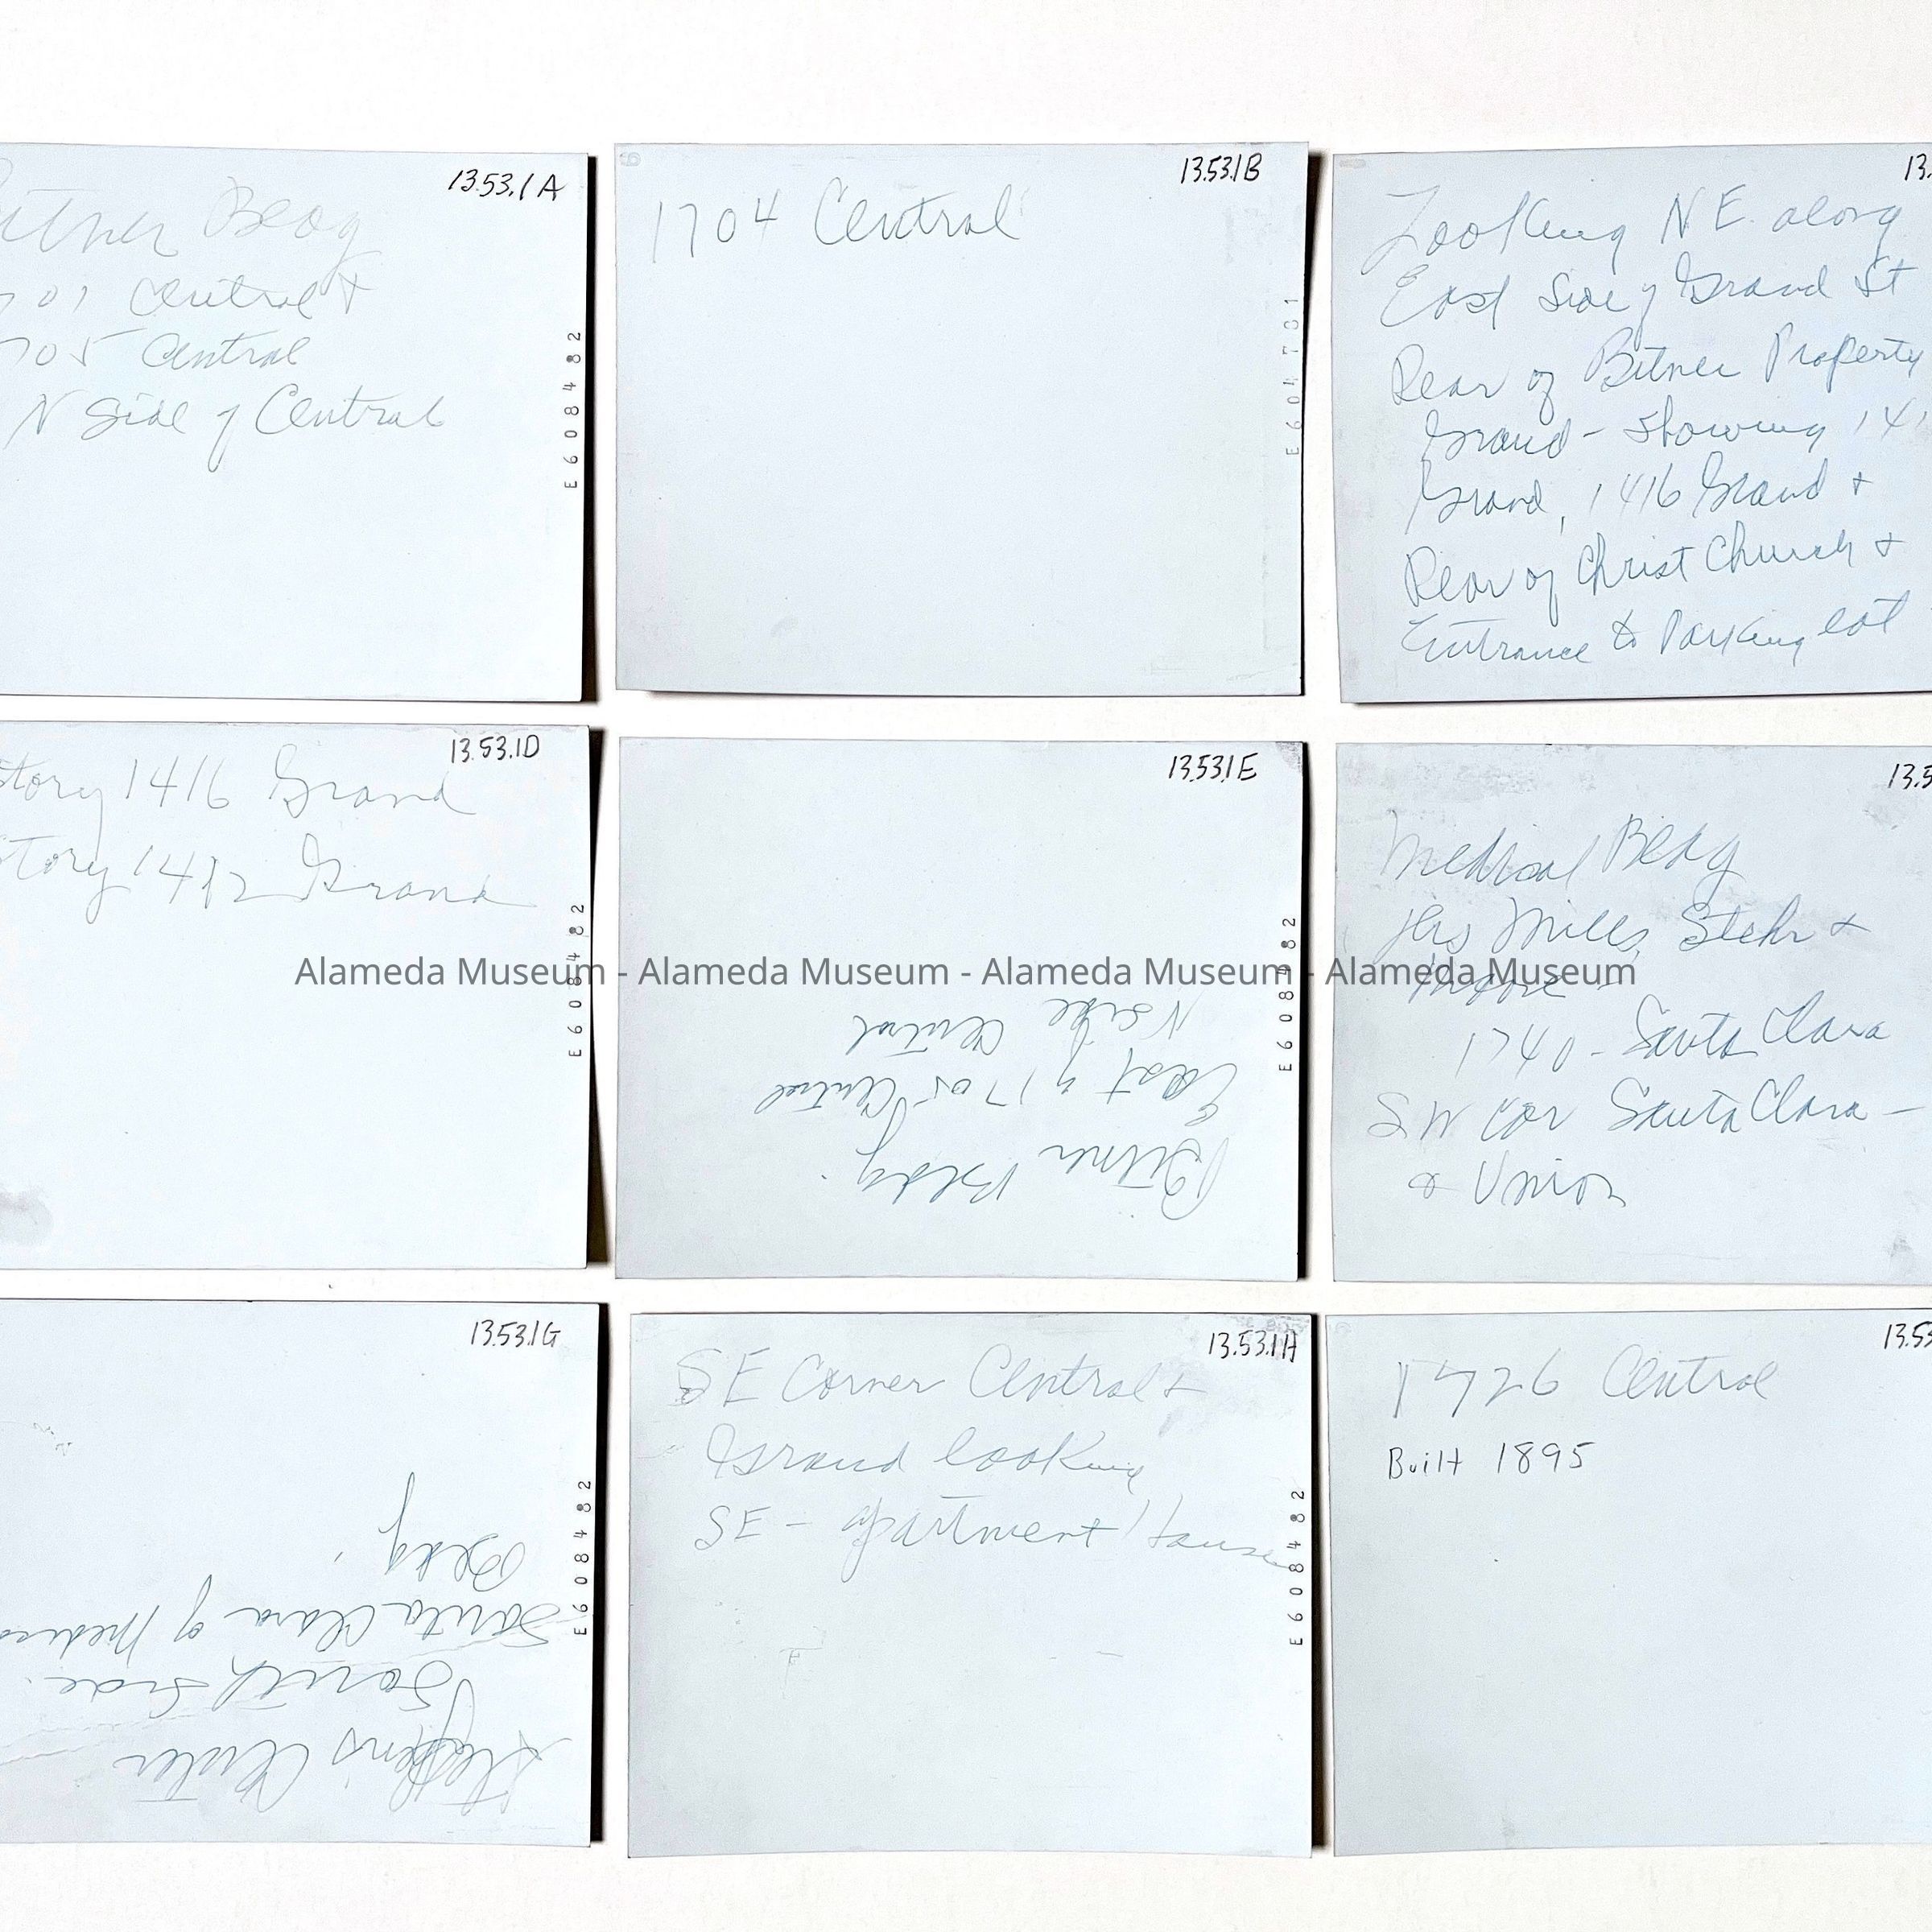 13.53.1A
Bldg
Central +
705 Central
N Side of Central
E608482
13.53.1B
1704 Central
E604701
13.
Looking NE. along
East Side of Grand St
Rear of Bitner Property
Grand - Showing 141
Grand, 1416 Grand +
Rear of Christ Church +
Entrance to Parking Lot
13.53.1D
story 1416 Grand
story 1412 Grand
E608482
13.53.1E
Bitner Bldg.
East of 1705 Central
N Side Central
E608482
13.5
Medical Bldg
Mills, Stehr +
1740 - Santa Clara
SW Cor Santa Clara -
& Union
Alameda Museum - Alameda Museum - Alameda Museum - Alameda Museum
13.53.1G
South Side
Santa Clara of
Bldg.
E608482
13.53.1H
SE Corner Central +
Grand looking
SE - apartment House
E608482
13.53
1726 Central
Built 1895